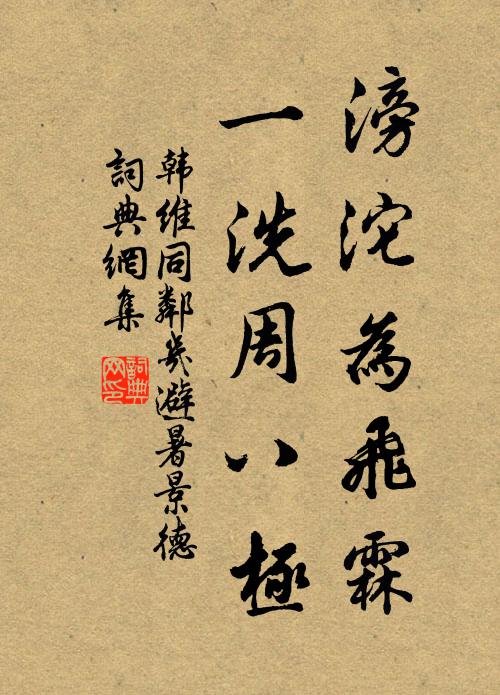 滂沱為飛霖
一洗周八極
韩維同鄰幾避暑景德
詞典網集
詞典
网印